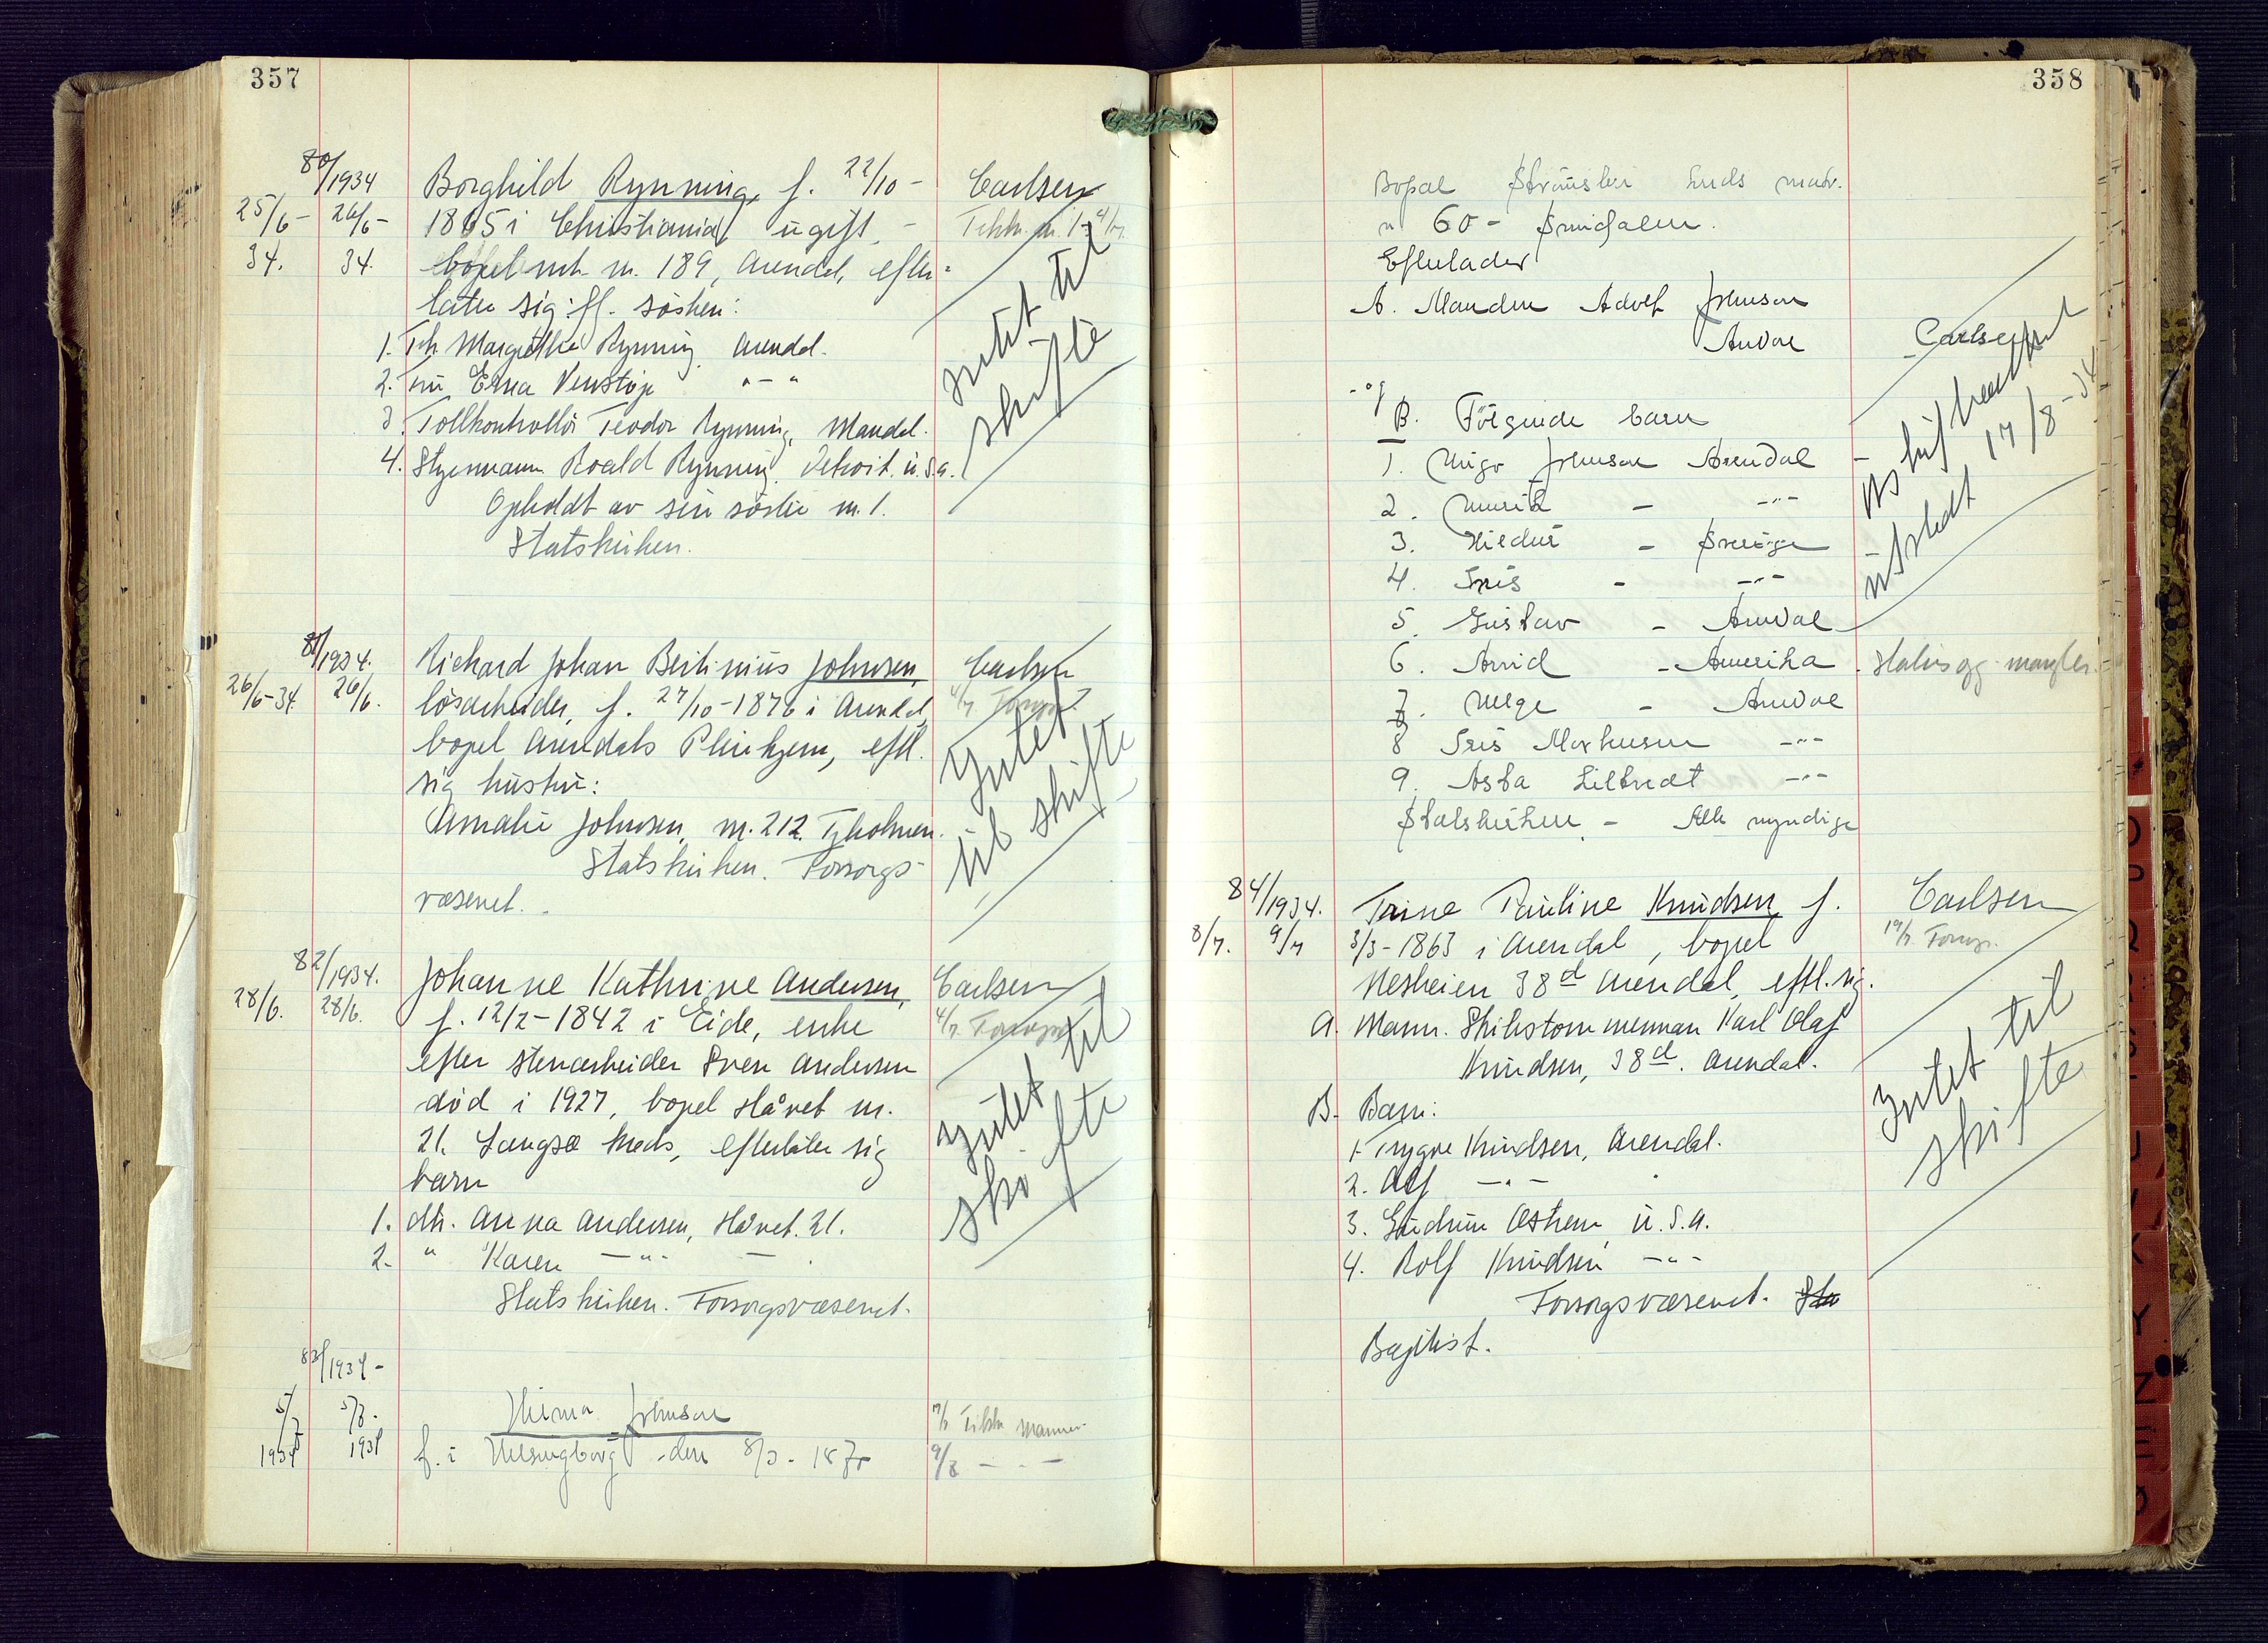 357
80/1934
25/6- 26/6-
34. 34.
Borghild Rynning, f. 22/10-
1865 i Christiania, ugift, -
bopel mtr. nr. 189, Arendal, efter-
later sig flg. søsken:
1. Frk. Margrethe Rynning, Arendal.
2. Fru Erna Venstøp " - "
3. Tollkontrollør Teodor Rynning, Mandal.
4. Styrmann Roald Rynning, Detroit. U.S.A.
Opholdt av sin søster nr. 1.
Statskirken.
Carlsen
Intet til
skifte
81/1934.
26/6-34. 26/6.
Richard Johan Bertinius Johnsen,
løsarbeider, f. 27/10-1876 i Arendal,
bopel Arendals Pleiehjem, eftl.
sig hustru:
Amalie Johnsen, nr. 212 Tyholmen.
Statskirken. Forsorgs-
væsenet.
Carlsen
Intet
til skifte
82/1934.
28/6. 28/6.
Johanne Kathrine Andersen,
f. 12/2-1842 i Eide, enke
efter stenarbeider Sven Andersen
død i 1927, bopel Håvet nr.
21. Langsæ kreds, efterlater sig
barn
1. dtr. Anna Andersen, Håvet. 21.
2. " Karen - " - -
Statskirken. Forsorgsvæsenet.
Carlsen
4/7. Forsorgsv.
Intet til
skifte
83/1934-
5/7 5/7.
1934 1934
Johnsen
f. i Helsingborg den 8/3-1870
358
Bopæl
n 60 -
Efterlader
A. Manden Adolf Johnsen
Arendal
og
B. Følgende barn
1. Johnsen Arendal
2. - - " -
3. - Sverige
4. - - " -
5. Gustav - Arendal
6. Arvid - Amerika
7. Helge - Arendal
8 - " -
9. Asta - " -
Statskirken - Alle myndige
Carlsen
utstedt 17/8-34
mangler.
84/1934.
8/7. 9/7
Trine Pauline Knudsen f.
3/3-1863 i Arendal, bopel
Nesheien 38d Arendal, eftl. sig.
A. Mann. Skibstømmermann Karl Olaf
Knudsen, 38d. Arendal.
B. Barn:
1. Trygve Knudsen, Arendal.
2. Alf - " -
3. Gudrun U.S.A.
4. Rolf Knudsen - " -
Forsorgsvæsenet. Sta
Baptist.
Carlsen
19/7. Forsorgv.
Intet til
skifte